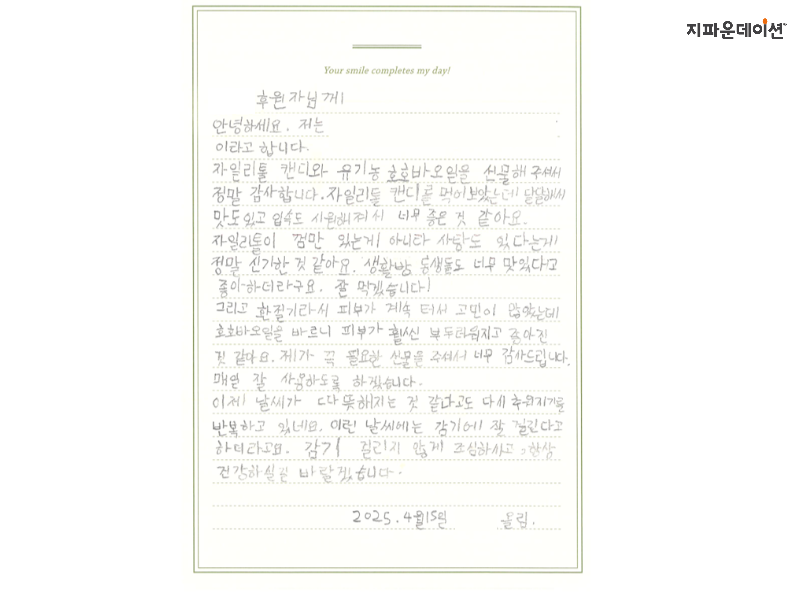 지파운데이션
Your smile completes my day!
후원자님께!
안녕하세요. 저는
이라고 합니다.
자일리톨 캔디와 유기농 호호바오일을 선물해 주셔서
정말 감사합니다. 자일리톨 캔디를 먹어보았는데 달달해서
맛도 있고 입속도 시원해져서 너무 좋은 것 같아요.
자일리톨이 껌만 있는게 아니라 사탕도 있다는게
정말 신기한 것 같아요. 생활방 동생들도 너무 맛있다고
좋아하더라구요. 잘 먹겠습니다!
그리고 환절기라서 피부가 계속 터서 고민이 많았는데
호호바오일을 바르니 피부가 훨씬 부드러워지고 좋아진
것 같아요. 제가 꼭 필요한 선물을 주셔서 너무 감사드립니다.
매일 잘 사용하도록 하겠습니다.
이제 날씨가 따뜻해지는 것 같다고도 다시 추워지기를
반복하고 있네요. 이런 날씨에는 감기에 잘 걸린다고
하더라고요. 감기 걸리지 않게 조심하시고 항상
건강하실길 바랄겠습니다.
2025. 4월15일 올림.